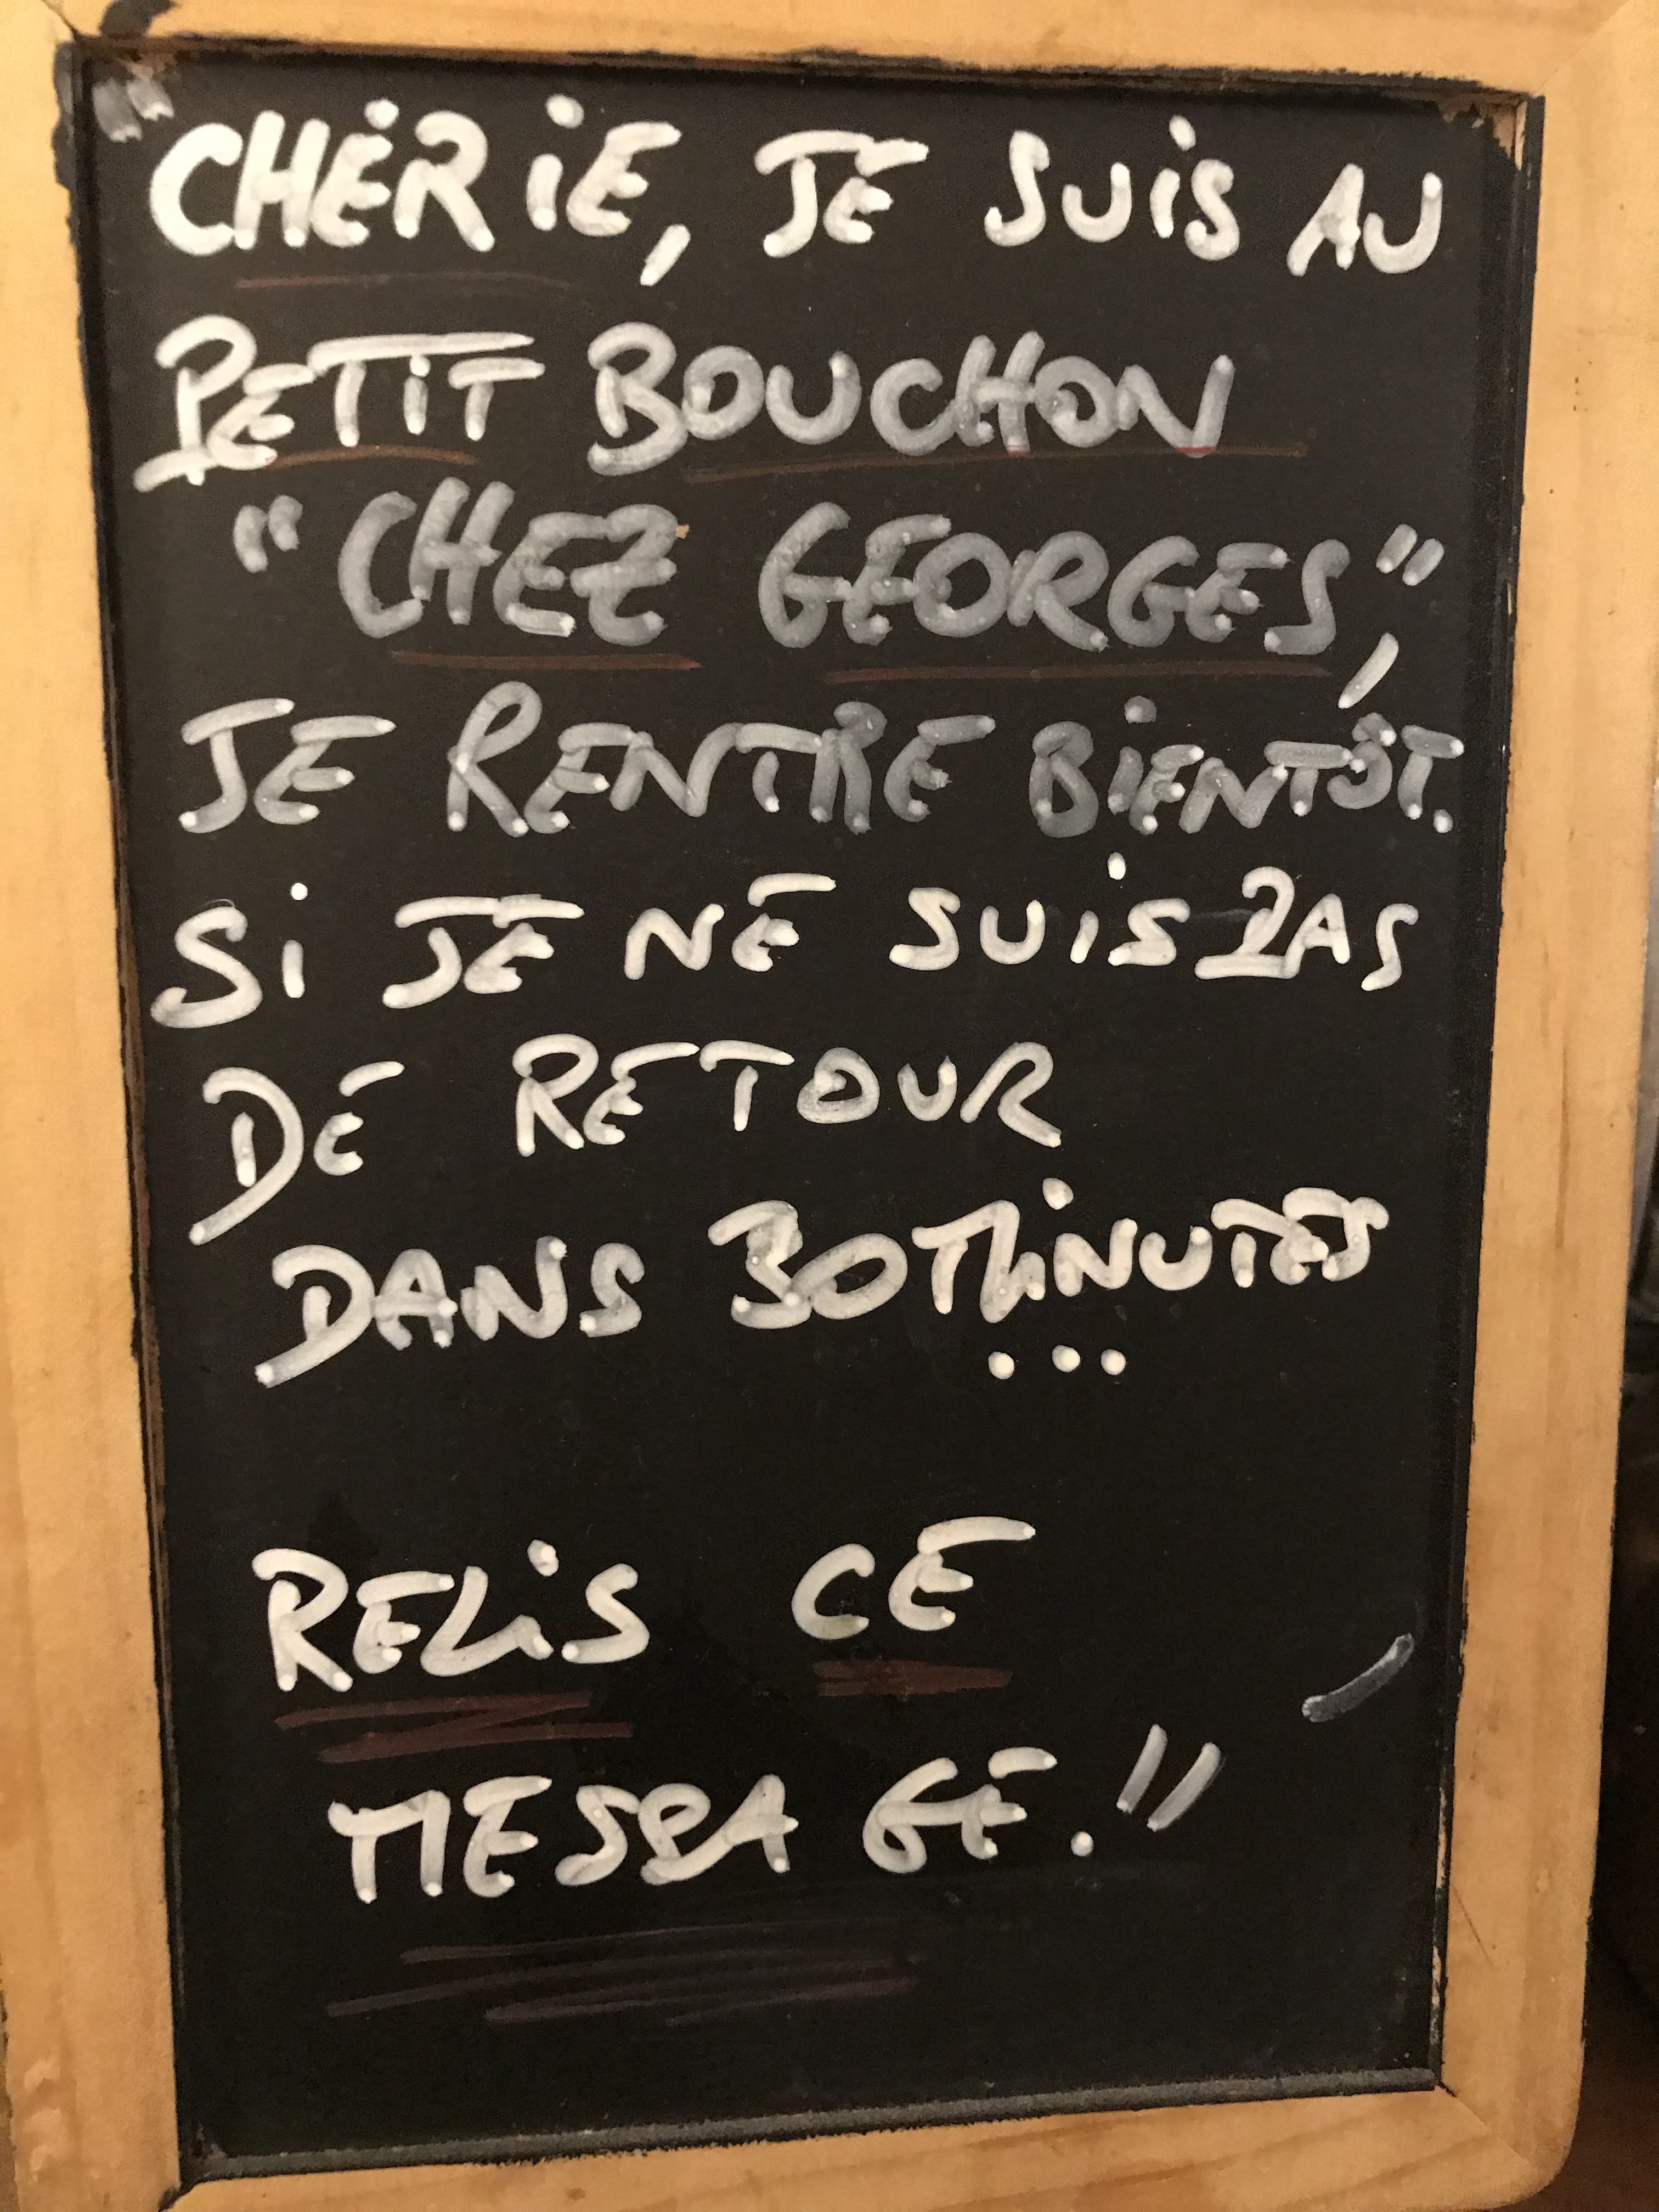 "CHÉRIE, JE SUIS AU
PETIT BOUCHON
"CHEZ GEORGES",
JE RENTRE BIENTÔT.
Si JE NE SUIS PAS
DE RETOUR
DANS 30 MINUTES
...
RELIS CE
MESSAGE."